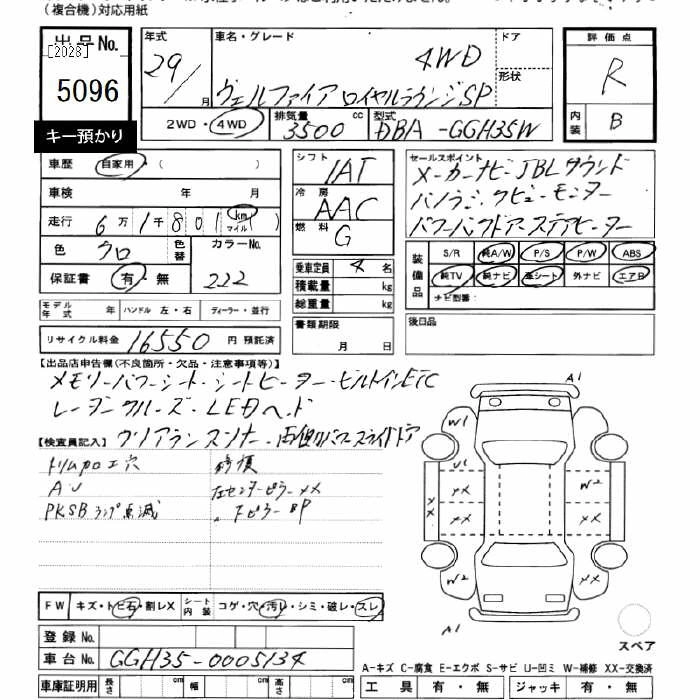 (複合機)対応用紙
出品No.
[2028]
5096
キー預かり
年式
29/月
車名・グレード
4WD
ヴェルファイア ロイヤルラウンジSP
ドア
形状
2WD・4WD
排気量
3500 cc
型式
DBA-GGH35W
評価点
R
内装
B
車歴 自家用・( )
車検 年 月
走行 6万1千801 km マイル ( )
色 クロ 色替 カラーNo.
保証書 有・無 222
シフト IAT
冷房 AAC
燃料 G
乗車定員 4 名
積載量 kg
総重量 kg
書類期限
月 日
セールスポイント
メーカーナビ・JBLサウンド
パノラミックビューモニター
パワーバックドア・ステアヒーター
装備品
S/R 純A/W P/S P/W ABS
純TV 純ナビ 革シート 外ナビ エアB
ナビ型番:
後日品
モデル年式 年 ハンドル 左・右 ディーラー・並行
リサイクル料金 16550 円 預託済
【出品店申告欄(不良箇所・欠品・注意事項等)】
メモリーパワーシート・シートヒーター・ビルトインETC
レーダークルーズ・LEDヘッド
クリアランスソナー・両側パワースライドドア
【検査員記入】
トリム加工穴
AU
PKSBランプ点滅
修復
左センターピラーXX
〃 FピラーBP
A1
W1
U1
XX
XX
XX
W2
W2
XX
XX
A1
スペア
FW キズ・トビ石・割レX シート内装 コゲ・穴・汚レ・シミ・破レ・スレ
登録No.
車台No. GGH35-0005134
車庫証明用 長さ cm 幅 cm 高さ cm
A-キズ C-腐食 E-エクボ S-サビ U-凹ミ W-補修 XX-交換済
工具 有・無 ジャッキ 有・無